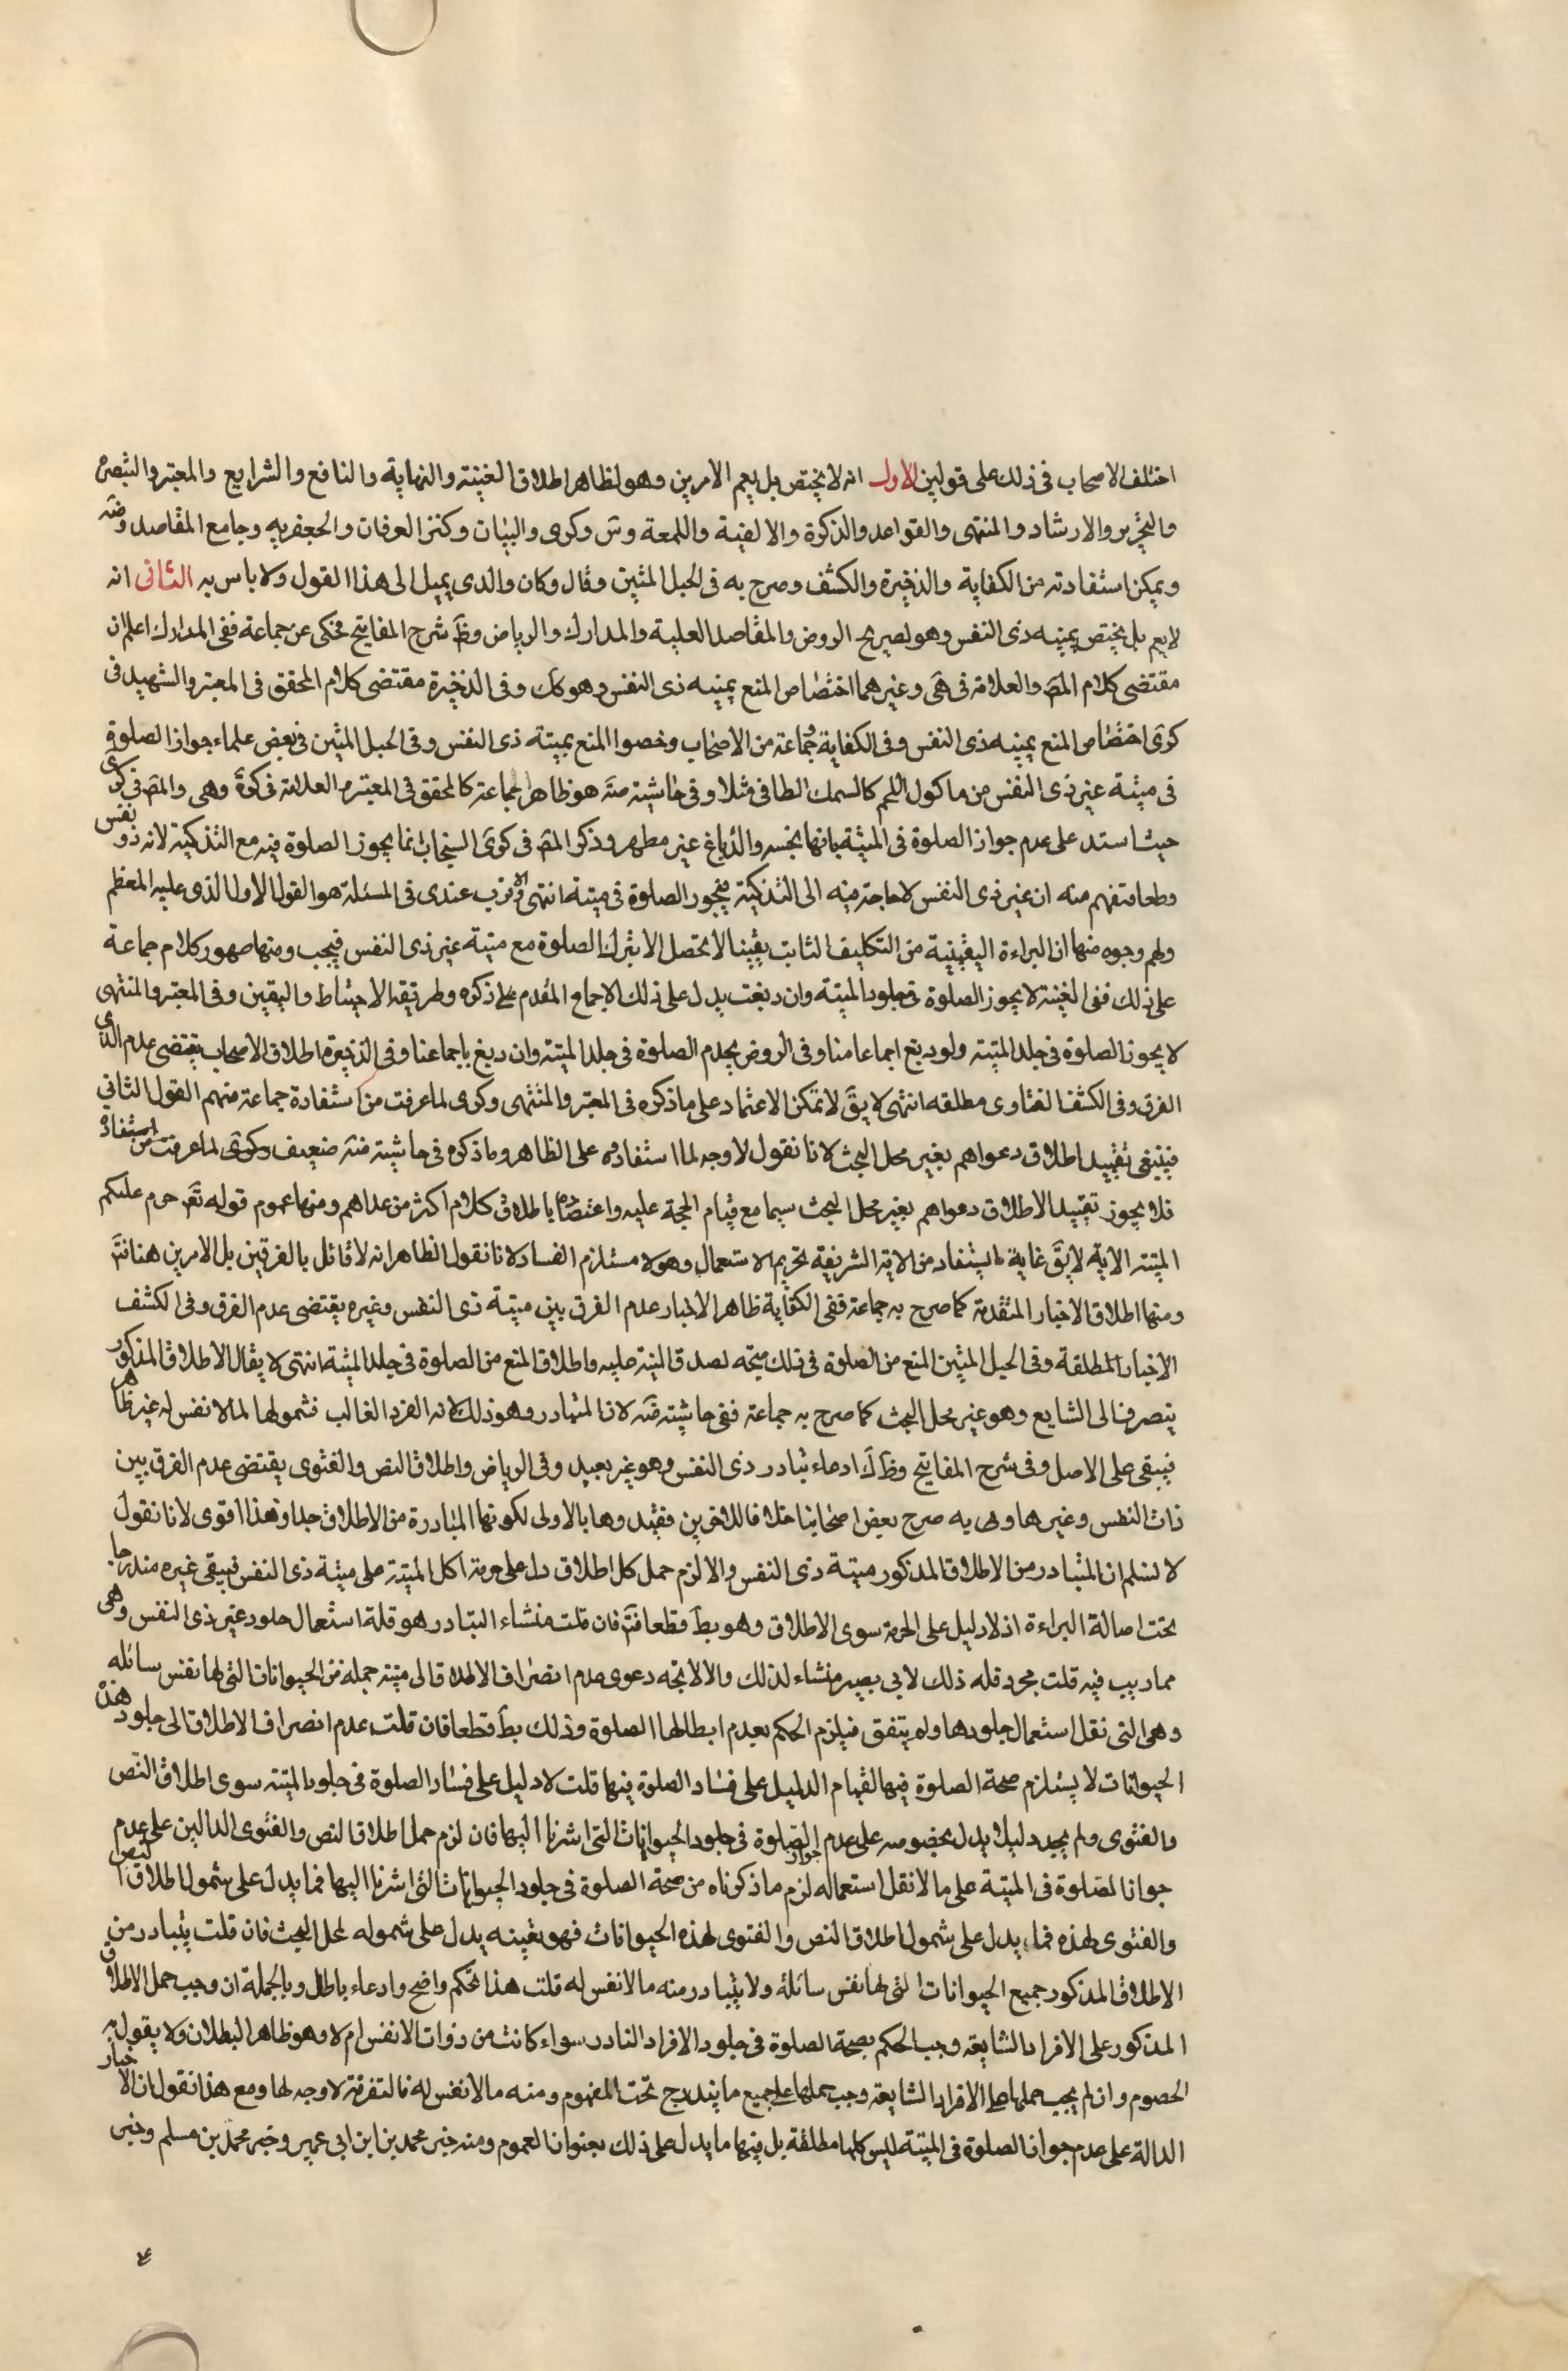 اختلف الاصحاب فى ذلك على قولين الاول انه لا يختص بل يعم الامرين وهو لظاهر اطلاق الغنية والنهاية والنافع والشرايع والمعتبر والتبصرة
والتحرير والارشاد والمنتهى والقواعد والذكرة والالفية واللمعة وس وكرى والبيان وكنز العرفان والجعفريه وجامع المقاصد وضه
ويمكن استفادته من الكفاية والذخيرة والكشف وصرح به فى الحبل المتين وقال وكان والدى يميل الى هذا القول ولا باس به الثانى انه
لا يعم بل يختص بميته ذى النفس وهو لصريح الروض والمقاصد العلية والمدارك والرياض وظ شرح المفاتيح محكى عن جماعة ففى المدارك اعلم ان
مقتضى كلام المص والعلامة فى هى وغيرهما اختصاص المنع بميته ذى النفس وهو كك وفى الذخيرة مقتضى كلام المحقق فى المعتبر والشهيد فى
كرى اختصاص المنع بميته ذى النفس وفى الكفاية وجماعة من الاصحاب وخصوا المنع بميتة ذى النفس وفى الحبل المتين فى بعض علماء جواز الصلوة
فى ميتة غير ذى النفس من ماكول اللحم كالسمك الطافى مثلا وفى حاشيته منه هو ظاهر جماعة كالمحقق فى المعتبر والعلامة فى كرة وهى والمص فى كرى
حيث استد على عدم جواز الصلوة فى الميتة بانها نجسه والدباغ غير مطهر وذكر المص فى كرى السنجاب انما يجوز الصلوة فيه مع التذكية لانه ذو نفس
وطعا متفهم منه ان غير ذى النفس لا حاجة فيه الى التذكية فيجوز الصلوة فى ميتة انتهى والاقرب عندى فى المسئلة هو القول الاول الذى عليه المعظم
ولهم وجوه منها ان البراءة اليقينية من التكليف الثابت يقينا لا يحصل الا بترك الصلوة مع ميتة غير ذى النفس فيجب ومنها ظهور كلام جماعة
على ذلك ففى الغنية لا يجوز الصلوة فى جلود الميته وان دبغت يدل على ذلك الاجماع المقدم على ذكره وطريقه الاحتياط واليقين وفى المعتبر والمنتهى
لا يجوز الصلوة فى جلد الميته ولو دبغ اجماعا منا وفى الروض يحدم الصلوة فى جلد الميتة وان دبغ باجماعنا وفى الذخيرة اطلاق الاصحاب يقتضى عدم
الفرق وفى الكشف الفتاوى مطلقه انتهى لا يق لا تمكن الاعتماد على ما ذكره فى المعتبر والمنتهى وكرى لما عرفت من استفادة جماعة منهم القول الثانى
فينبغى تقييد اطلاق دعواهم بغير محل البحث لانا نقول لا وجه لما استفادوه على الظاهر وما ذكره فى حاشيته منه ضعيف وكرى لما عرفت من استفادة
فلا يجوز تقييد الاطلاق دعواهم بغير محل البحث سيما مع قيام الحجة عليه واعتضاده باطلاق كلام اكثر من عداهم ومنها عموم قوله تع حرم عليكم
الميتته الاية لا يق غاية ما يستفاد من الاية الشريفة تحريم الاستعمال وهو لا مستلزم الفساد لانا نقول الظاهر انه لا قائل بالفرق بين الامرين هنا فتأ
ومنها اطلاق الاخبار المتقدمة كما صرح به جماعة ففى الكفاية ظاهر الاخبار عدم الفرق بين ميتة ذى النفس وغيره يقتضى عدم الفرق وفى الكشف
الاخبار المطلقة وفى الحبل المتين المنع من الصلوة فى تلك متجه لصدق الميتة عليه واطلاق المنع من الصلوة فى جلد الميتة انتهى لا يقال الاطلاق المذكور
ينصرف الى الشايع وهو غير محل البحث كما صرح به جماعة ففى حاشيته منه لان المتبادر وهو ذلك لانه الفرد الغالب فشمولها لما لا نفس له غير ظاهر
فيبقى على الاصل وفى شرح المفاتيح وظ ك ادعاء تبادر ذى النفس وهو غير بعيد وفى الرياض واطلاق النص والفتوى يقتضى عدم الفرق بين
ذات النفس وغيرها وبه صرح بعض اصحابنا خلافا للاخرين فقيدوها بالاولى لكونها المتبادرة من الاطلاق جدا وهذا اقوى لانا نقول
لا نسلم ان المتبادر من الاطلاق المذكور ميتة ذى النفس والا لزم حمل كل اطلاق دل على حرمة اكل الميتة على ميتة ذى النفس فيبقى غيره مندرجا
تحت اصالة البراءة اذ لا دليل على الحرمة سوى الاطلاق وهو بط قطعا فتأ فان قلت منشاء التبادر هو قلة استعمال جلود غير ذى النفس وهى
مما ريب فيه قلت مجرد قله ذلك لا يصير منشاء لذلك والا لاتجه دعوى عدم انصراف الاطلاق الى ميتة جملة من الحيوانات التى لها نفس سائله
وهى التى نقل استعمال جلودها ولم يتفق فيلزم الحكم بعدم ابطالها الصلوة وذلك بط قطعا فان قلت عدم انصراف الاطلاق الى جلود هذه
الحيوانات لا يستلزم صحة الصلوة فيها لقيام الدليل على فساد الصلوة فيها قلت لا دليل على فساد الصلوة فى جلود الميتة سوى اطلاق النص
والفتوى ولم يجد دليل يدل بخصوصه على عدم جواز الصلوة فى جلود الحيوانات التى اشرنا اليها فان لزم حمل اطلاق النص والفتوى الدالين على عدم
جواز الصلوة فى الميتة على ما لا نقل استعماله لزم ما ذكرناه من صحة الصلوة فى جلود الحيوانات التى اشرنا اليها فما يدل على شمول اطلاق النص
والفتوى لهذه فما يدل على شمول اطلاق النص والفتوى لهذه الحيوانات فهو بعينه يدل على شموله لمحل البحث فان قلت يتبادر من
الاطلاق المذكور جميع الحيوانات التى لها نفس سائلة ولا يتبادر منه ما لا نفس له قلت هذا تحكم واضح وادعاء باطل وبالجملة ان وجب حمل الاطلاق
المذكور على الافراد الشايعة وجب الحكم بصحة الصلوة فى جلود الافراد النادر سواء كانت من ذوات الانفس ام لا وهو ظاهر البطلان ولا يقول به
الخصوم وان لم يجب حملها على الافراد الشايعة وجب حملها على جميع ما يندرج تحت المفهوم ومنه ما لا نفس له فالتفرقة لا وجه لها ومع هذا نقول ان الاخبار
الدالة على عدم جواز الصلوة فى الميتة ليس كلها مطلقة بل فيها ما يدل على ذلك بعنوان العموم ومنه خبر محمد بن ابن ابى عمير وخبر محمد بن مسلم وخبر